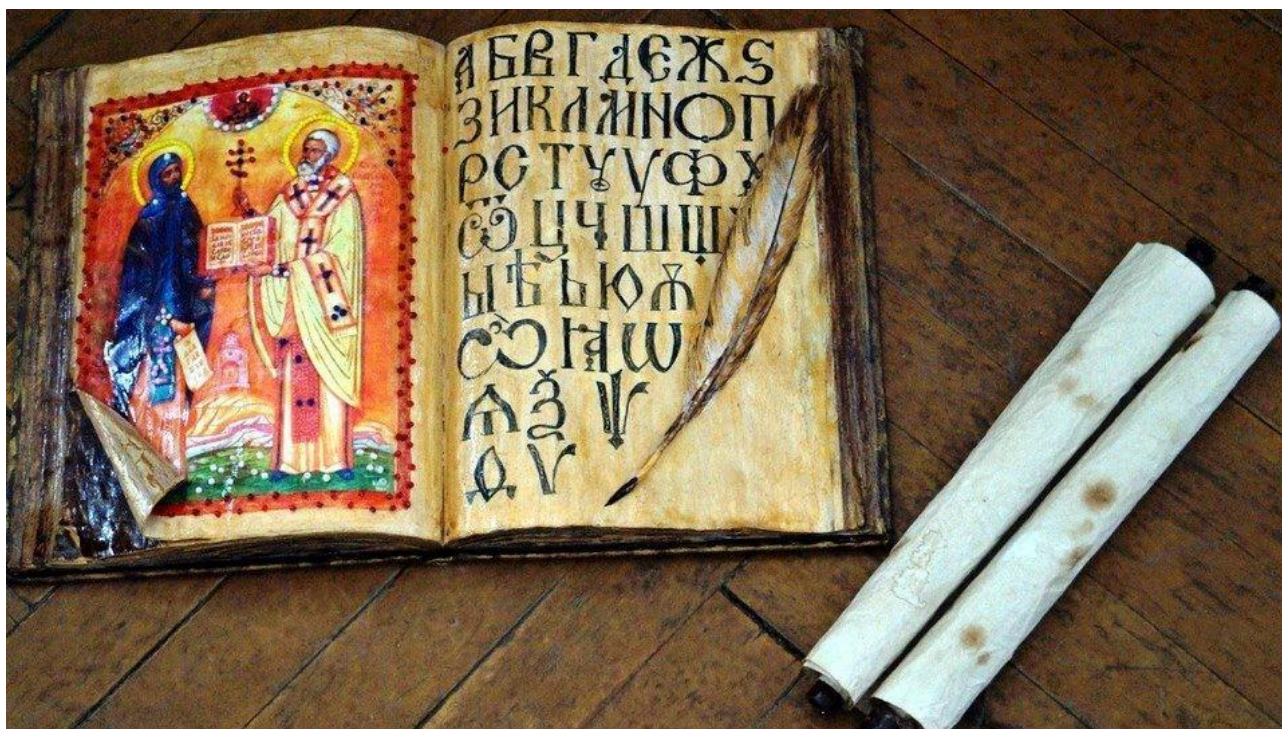 А Б В Г Д Є Ж Ѕ
З И К Л М Н О П
Р С Т Ꙋ Ѵ Ф Х
Ѿ Ц Ч Ш Щ
Ы Ѣ Ь Ю Ѫ
Ѽ Ꙗ Ѡ
Ѧ Ѯ Ѱ
Ѵ